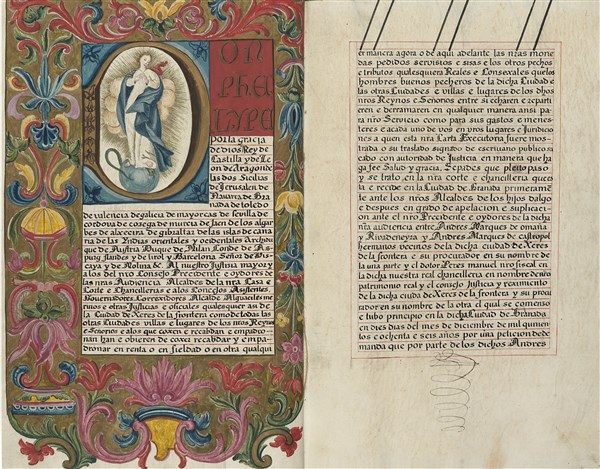 DON
PHE
LIPE
por la gracia
de dios Rey de
Castilla y de Le
on de aragon de
las dos Sicilias
de Jerusalen de
Navarra de Gra
nada de toledo
de valencia de galicia de mayorcas de sevilla de
cordova de corcega de murcia de Jaen de los algar
bes de algecira de gibraltar de las islas de cana
ria de las Indias orientales y occidentales Archidu
que de Austria Duque de Milan Conde de
flandes y de tirol y Barcelona Señor de Bis
caya y de Molina &c. Al nuestro Justicia mayor y
a los del nro Consejo Precidente e oydores de
las nras Audiencia Alcaldes de la nra Casa e
Corte e Chancillerias e a los Concejos Asistentes.
Governadores Correxidores Alcalde Alguaciles me
rinos e otras Justicias e oficiales qualesquier asi de
la Ciudad de Xerez de la frontera como de todas las
otras Ciudades villas e lugares de los nros Reynos
e Señorios e a los que coxen e recabdan e empadro
nan han e obieren de coxer recabdar y empa
dronar en renta o en fieldad o en otra qualqui
er manera agora o de aqui adelante las nras mone
das pedidos servisios e sisas e los otros pechos
e tributos qualesquiera Reales e Consexales que los
hombres buenos pecheros de la dicha Ciudad e
de las otras Ciudades e villas e lugares de los dhos
nros Reynos e Señorios entre si echaren e repartie
ren e derramaren en qualquier manera ansi pa
ra nro Servicio como para sus gastos e menes
teres e a cada uno de vos en vros lugares e Jurdicio
nes a quien esta nra Carta Executoria fuere mos
trada o su traslado signado de escrivano publico sa
cado con autoridad de Justicia en manera que ha
ga fee Salud y gracia, Sepades que pleito paso
y se trato en la nra corte e chancilleria que es
ta e recide en la Ciudad de Granada primeramen
te ante los nros Alcaldes de los hijos dalgo
e despues en grado de apelacion e suplicacion
ante el nro Precidente e oydores de la dicha
nra audiencia entre Andres Marques de omaña
y Rivadeneyra y Andres Marques de castropol
hermanos vecinos de la dicha ciudad de Xeres
de la frontera e su procurador en su nombre de
la una parte y el dotor Peres manuel nro fiscal en la
dicha nuestra real chancilleria en nombre de nro
patrimonio real y el consejo Justicia y reximiento
de la dicha ciudad de Xerez de la frontera y su procu
rador en su nombre de la otra el qual se comenso
e tubo principio en la dicha Ciudad de Granada.
en dies dias del mes de diciembre de mil quinien
tos e ochenta e seis años por una peticion de de
manda que por parte de los dichos Andres